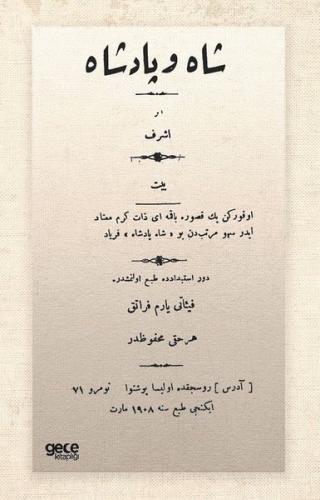 شاه و پادشاه
اثر
اشرف
بیت
اوقورکن پك قصوره باقمه ای ذات کرم معتاد
ایدر سهو مرتب‌دن بو « شاه پادشاه » فریاد
دور استبدادده طبع اولنمشدر.
فیئاتی یارم فرانق
هر حقی محفوظدر
[ آدرس ] روسجقده اولیسا پوشنوا نومرو ٧١
ایکنجی طبع سنه ١٩٠٨ مارت
gece
kitaplığı